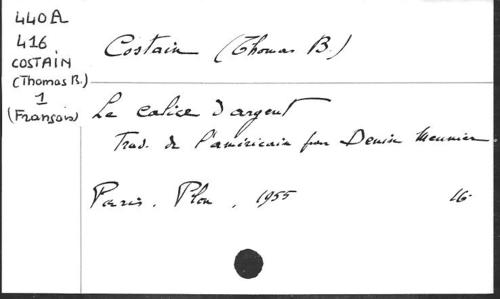 440A
416
COSTAIN
(Thomas B.)
1
(Français)
Costain (Thomas B.)
Le calice d'argent
Trad. de l'américain par Denise Meunier
Paris. Plon, 1955 16-